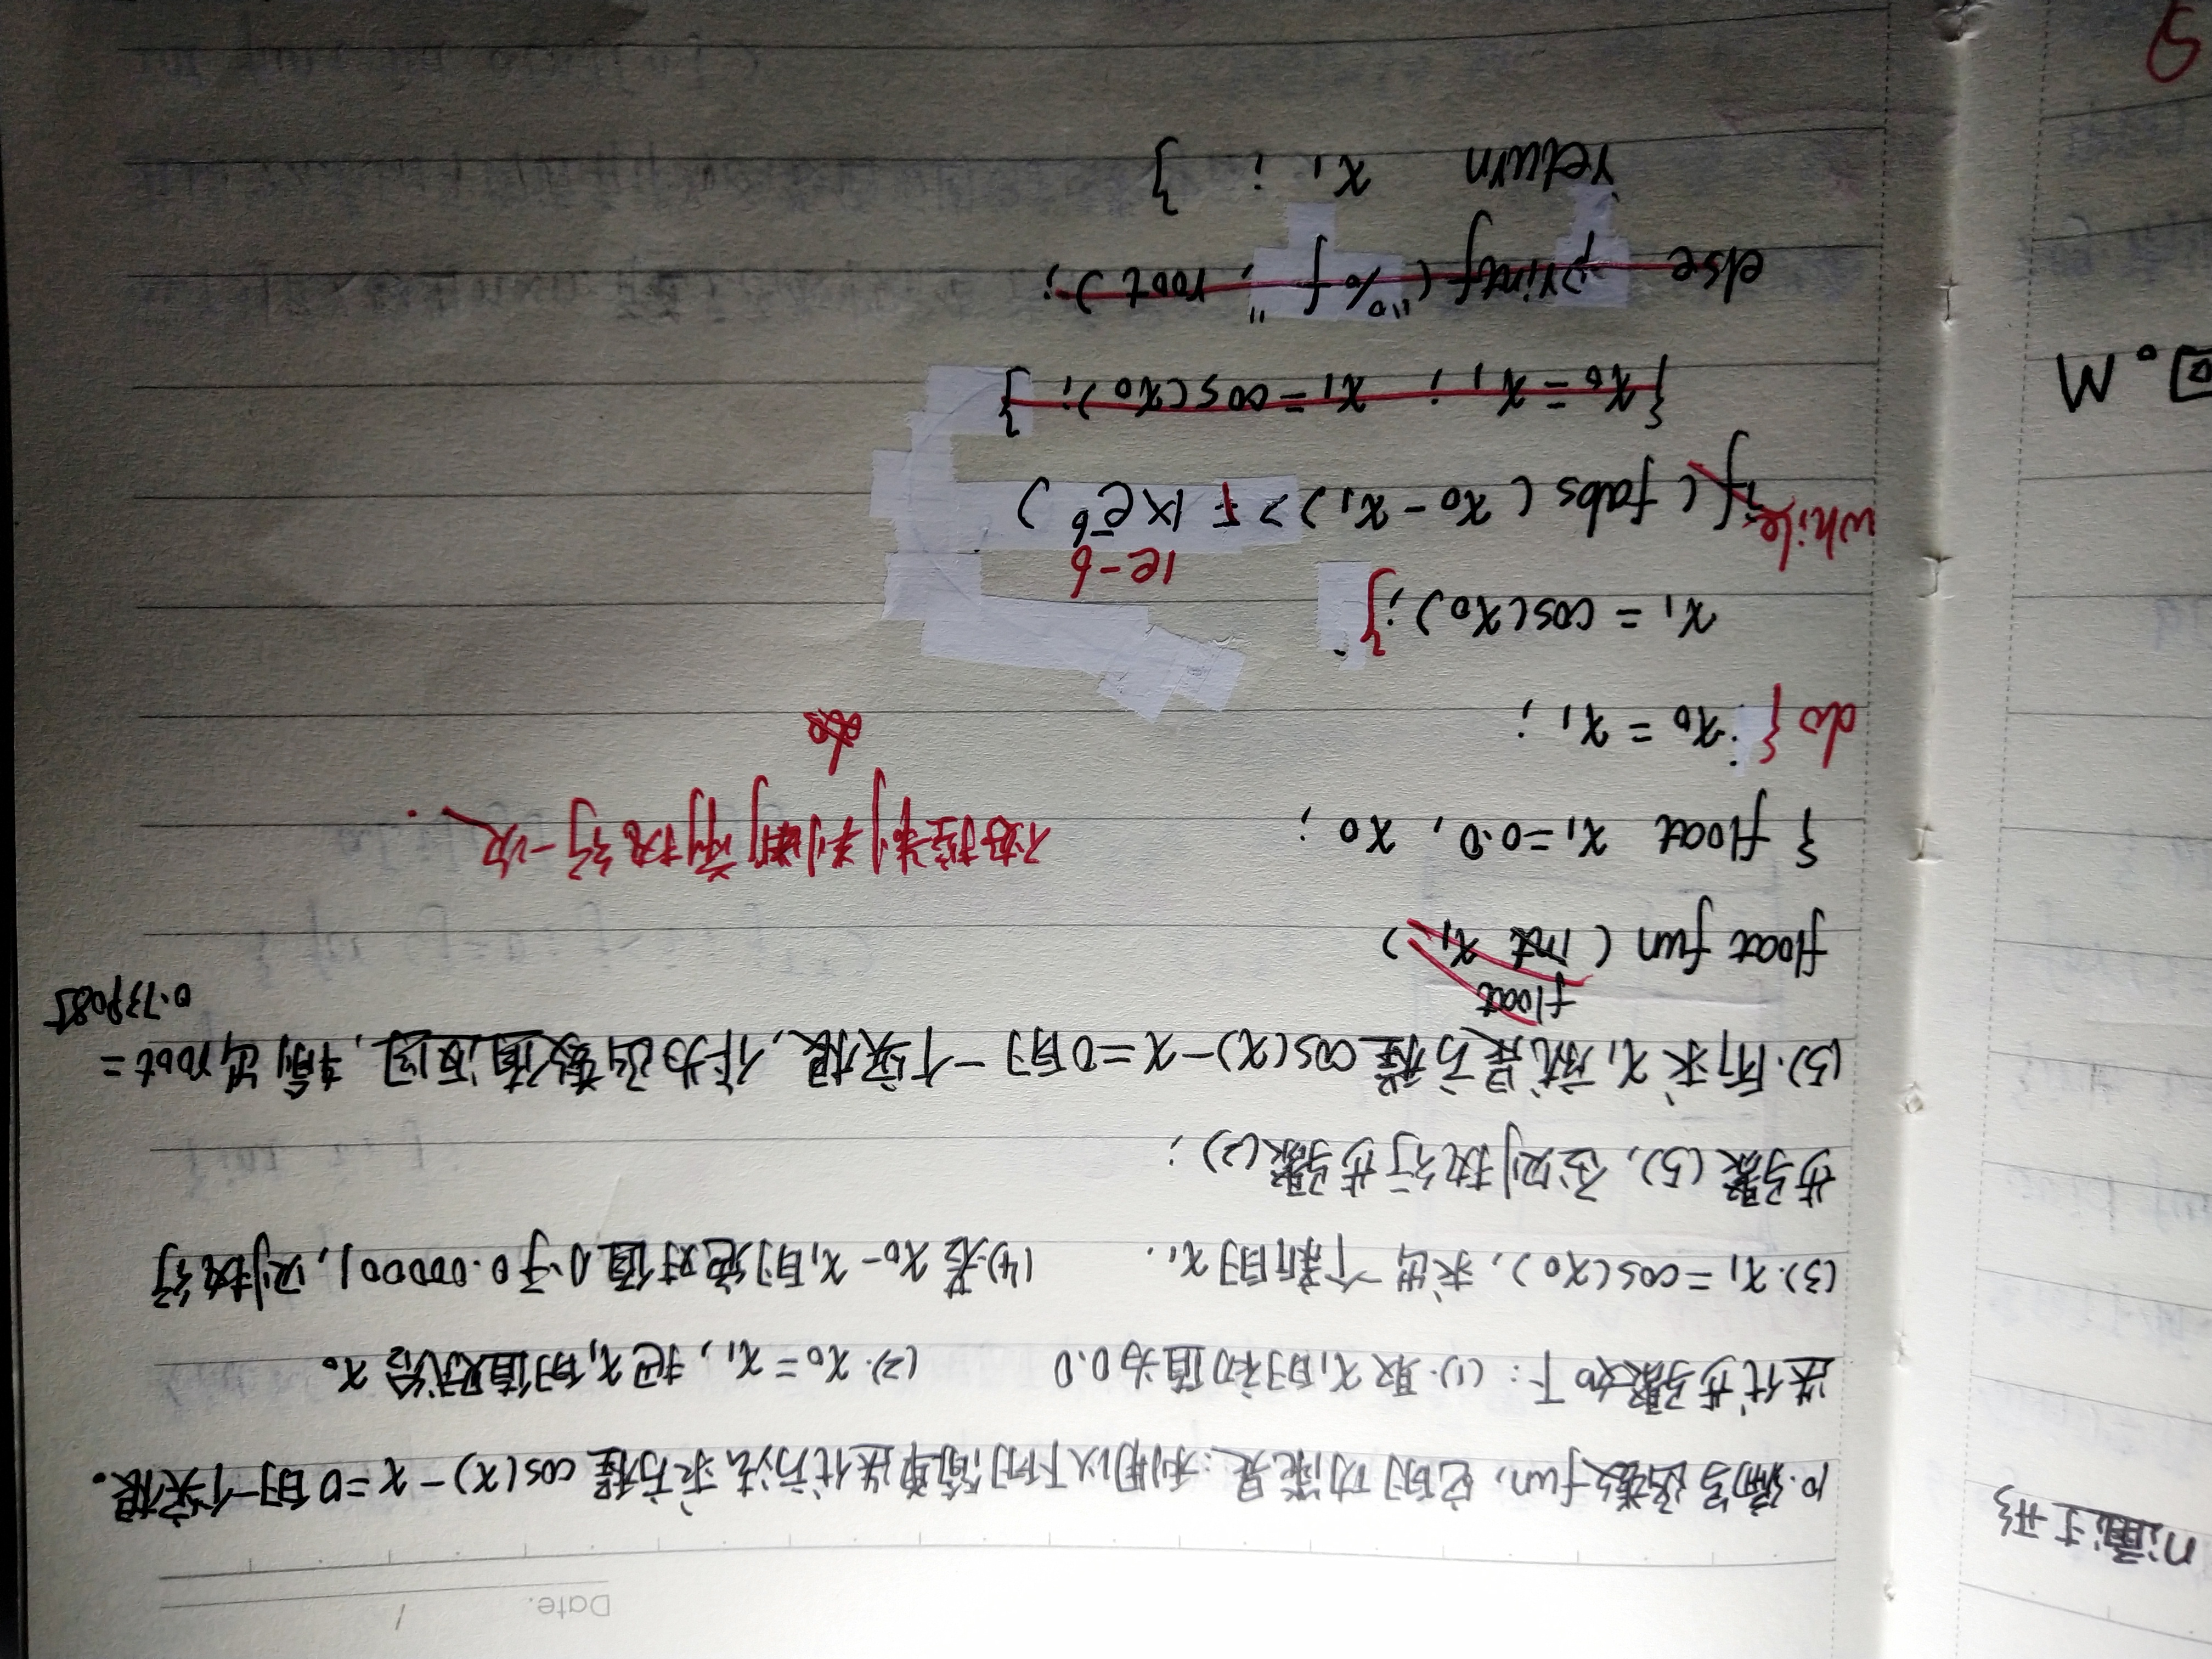 Date. /
10.编写函数fun,它的功能是:利用以下的简单迭代方法求方程 cos(x)-x=0的一个实根。
迭代步骤如下:(1).取x₁的初值为0.0 (2).x₀=x₁,把x₁的值赋给x₀
(3).x₁=cos(x₀),求出一个新的x₁. (4).若x₀-x₁的绝对值小于0.000001,则执行
步骤(5),否则执行步骤(2);
(5).所求x₁就是方程cos(x)-x=0的一个实根,作为函数值返回,输出root=
0.739085
float
float fun ( int x₁ )
{ float x₁=0.0, x₀;
不管控制判断,需执行一次.
do
do { x₀ = x₁ ;
x₁ = cos(x₀); }
1e-6
while if ( fabs ( x₀-x₁) > = 1×e⁻⁶ )
{ x₀ = x₁ ; x₁ = cos(x₀); }
else printf ("%f", root);
return x₁ ; }
n适于形
回。M